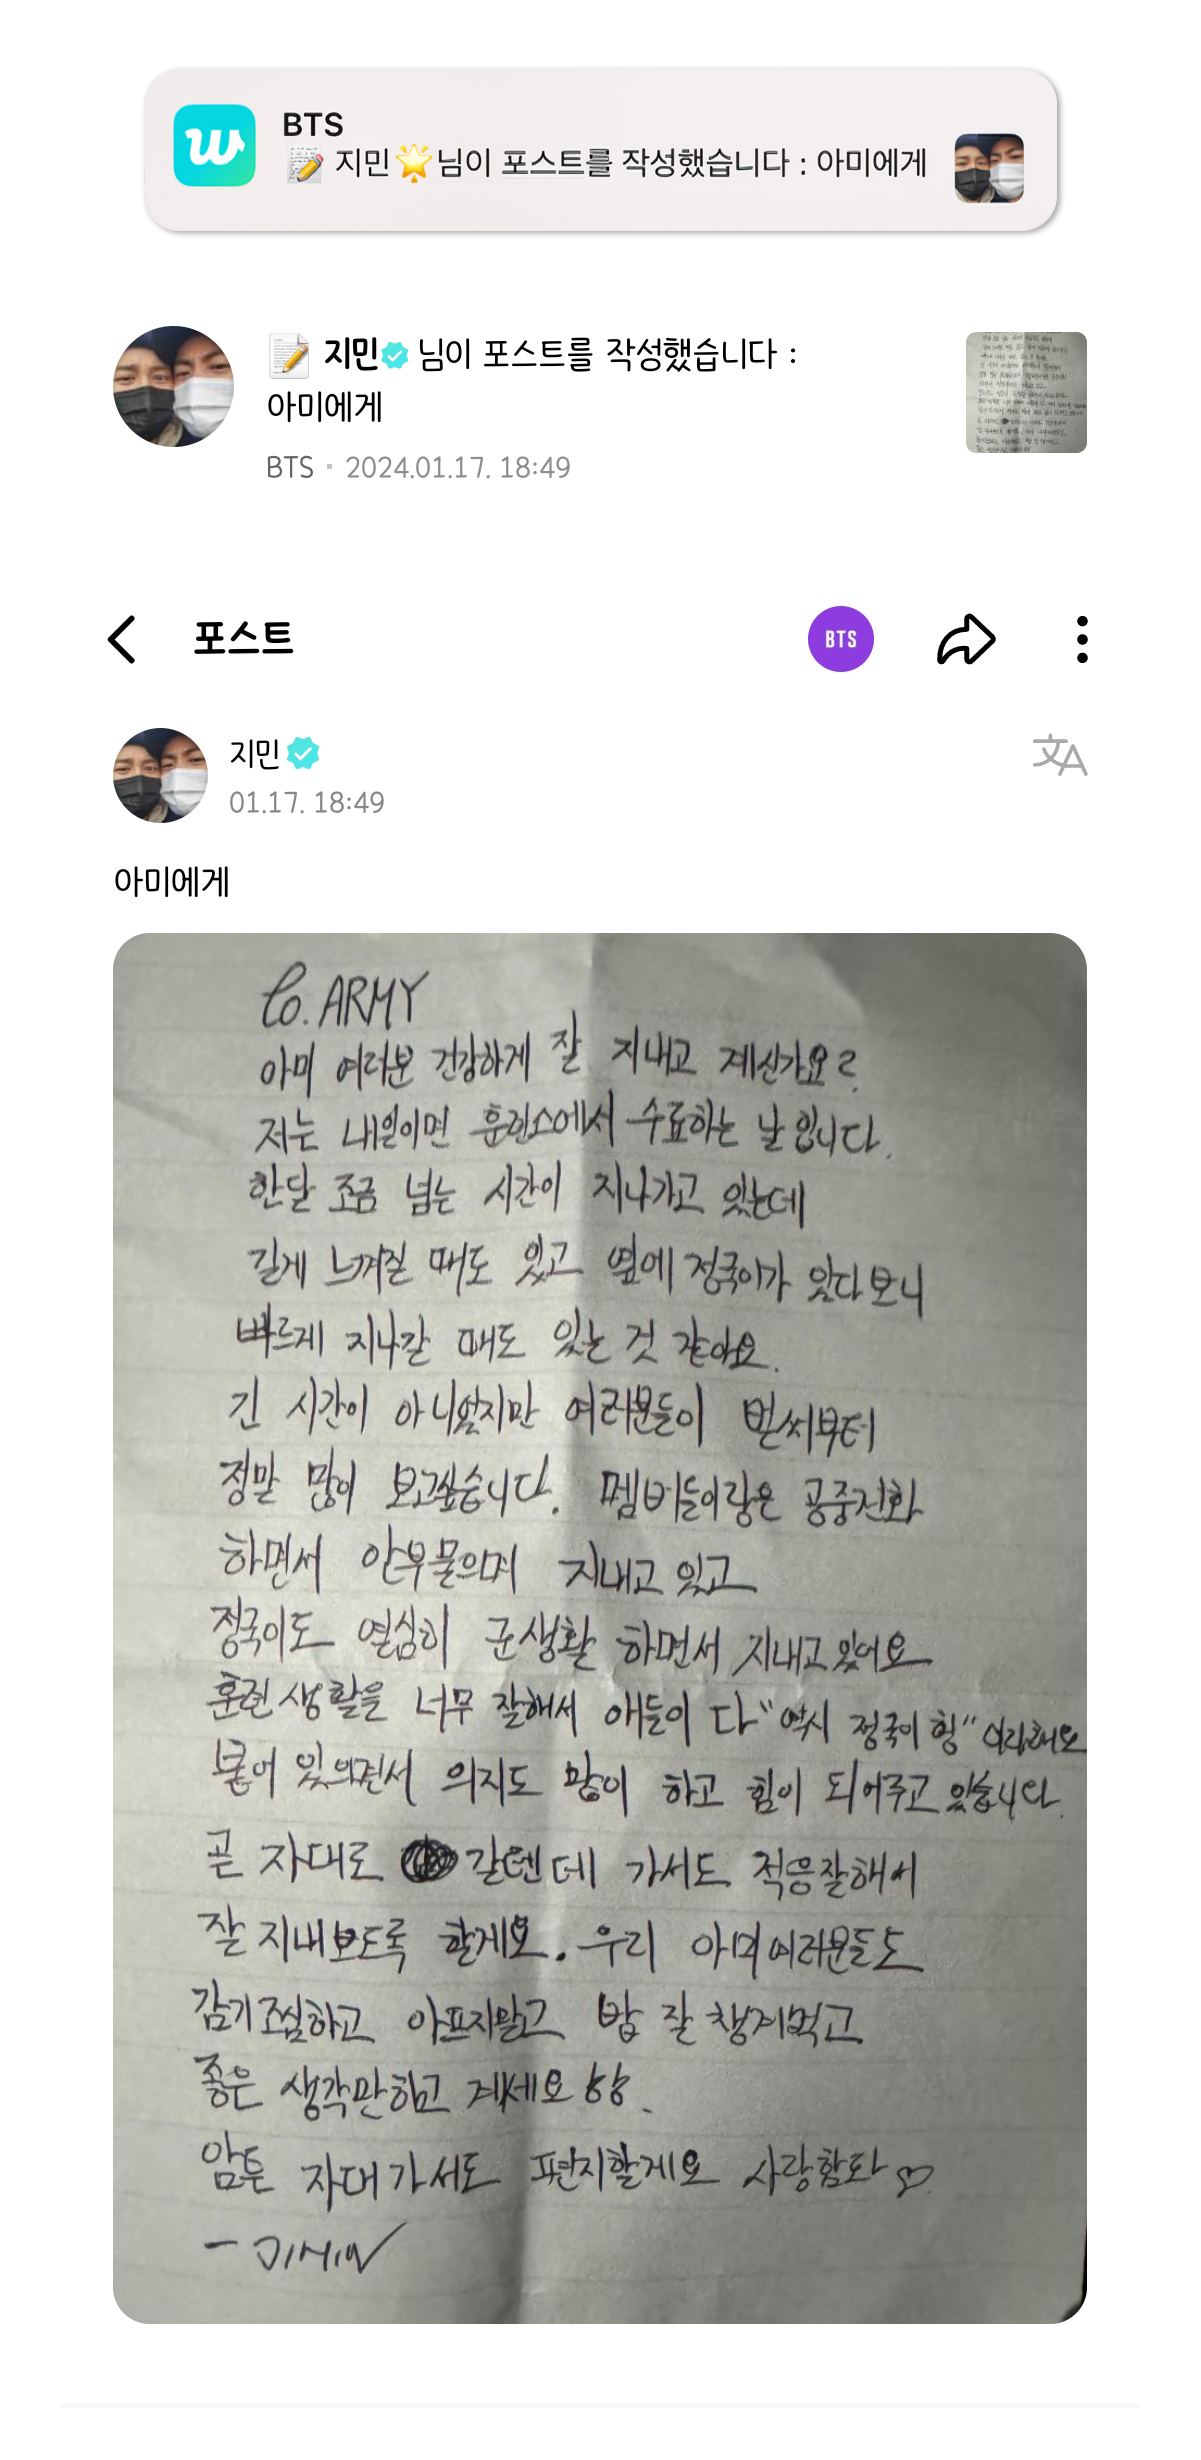 BTS
📝 지민🌟님이 포스트를 작성했습니다 : 아미에게
📝 지민 님이 포스트를 작성했습니다 :
아미에게
BTS · 2024.01.17. 18:49
포스트
BTS
지민
01.17. 18:49
아미에게
To. ARMY
아미 여러분 건강하게 잘 지내고 계신가요?
저는 내일이면 훈련소에서 수료하는 날 입니다.
한달 조금 넘는 시간이 지나가고 있는데
길게 느껴질 때도 있고 옆에 정국이가 있다보니
빠르게 지나갈 때도 있는 것 같아요.
긴 시간이 아니었지만 여러분들이 벌써부터
정말 많이 보고싶습니다. 멤버들이랑은 공중전화
하면서 안부물으며 지내고 있고
정국이도 열심히 군생활 하면서 지내고 있어요
훈련생활을 너무 잘해서 애들이 다 "역시 정국이 형" 이라해요
붙어 있으면서 의지도 많이 하고 힘이 되어주고 있습니다.
곧 자대로 갈텐데 가서도 적응잘해서
잘 지내보도록 할게요. 우리 아미여러분들도
감기조심하고 아프지말고 밥 잘 챙겨먹고
좋은 생각만하고 계세요 항항.
암튼 자대가서도 편지할게요 사랑함돠♡
- JIMIN